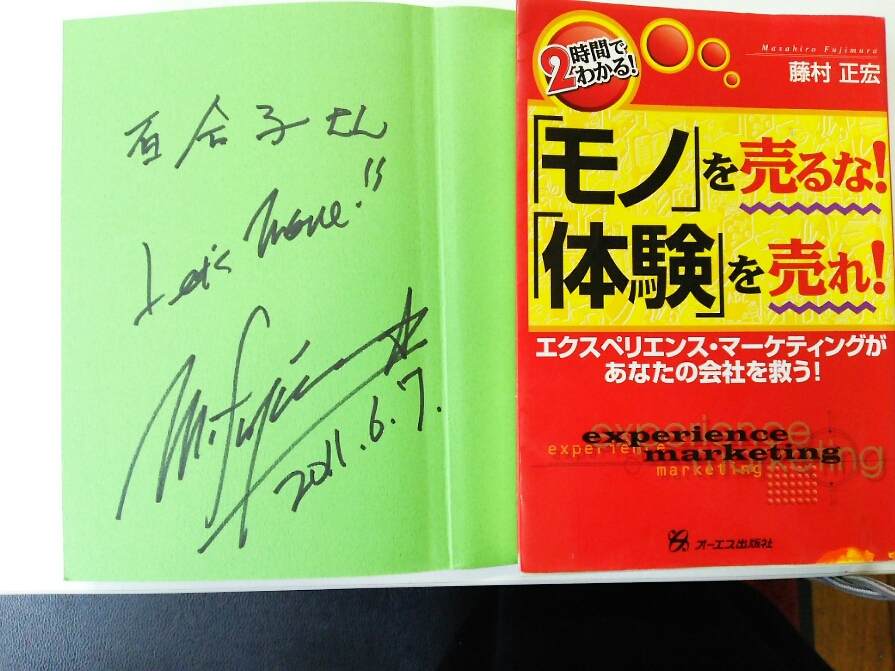 百合子さん
Let's Move!!
M.Fujimura
2011.6.7.
2時間で
わかる!
Masahiro Fujimura
藤村 正宏
「モノ」を売るな!
「体験」を売れ!
エクスペリエンス・マーケティングが
あなたの会社を救う!
experience
marketing
experience
marketing
experience
marketing
オーエス出版社